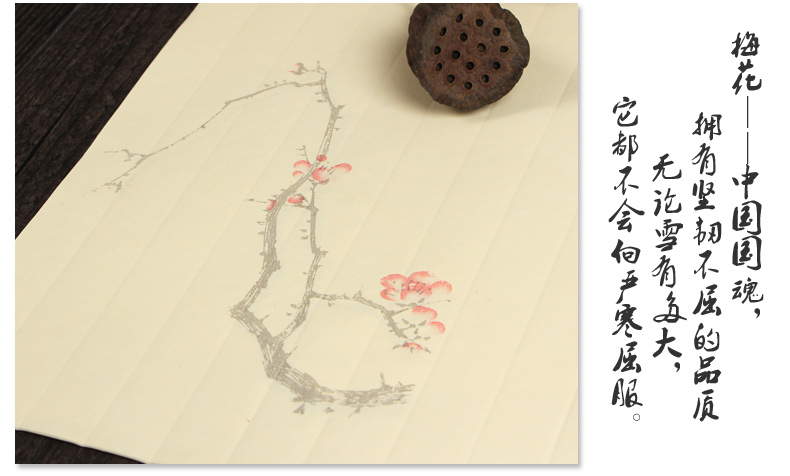 梅花——中国国魂，
拥有坚韧不屈的品质
无论雪有多大，
它都不会向严寒屈服。